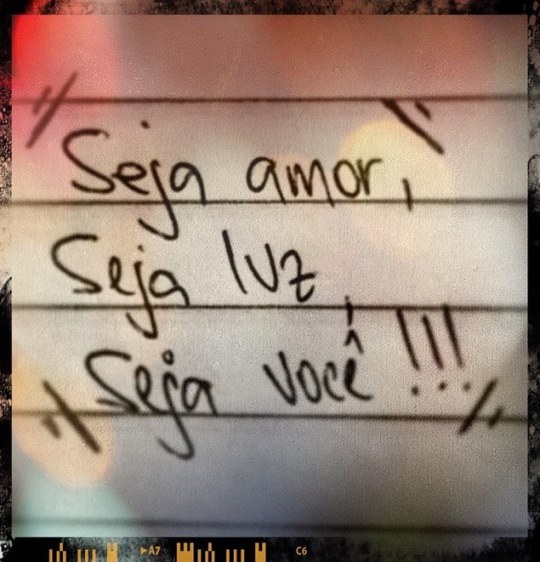 Seja amor,
Seja luz,
Seja você!!!
A7 C6